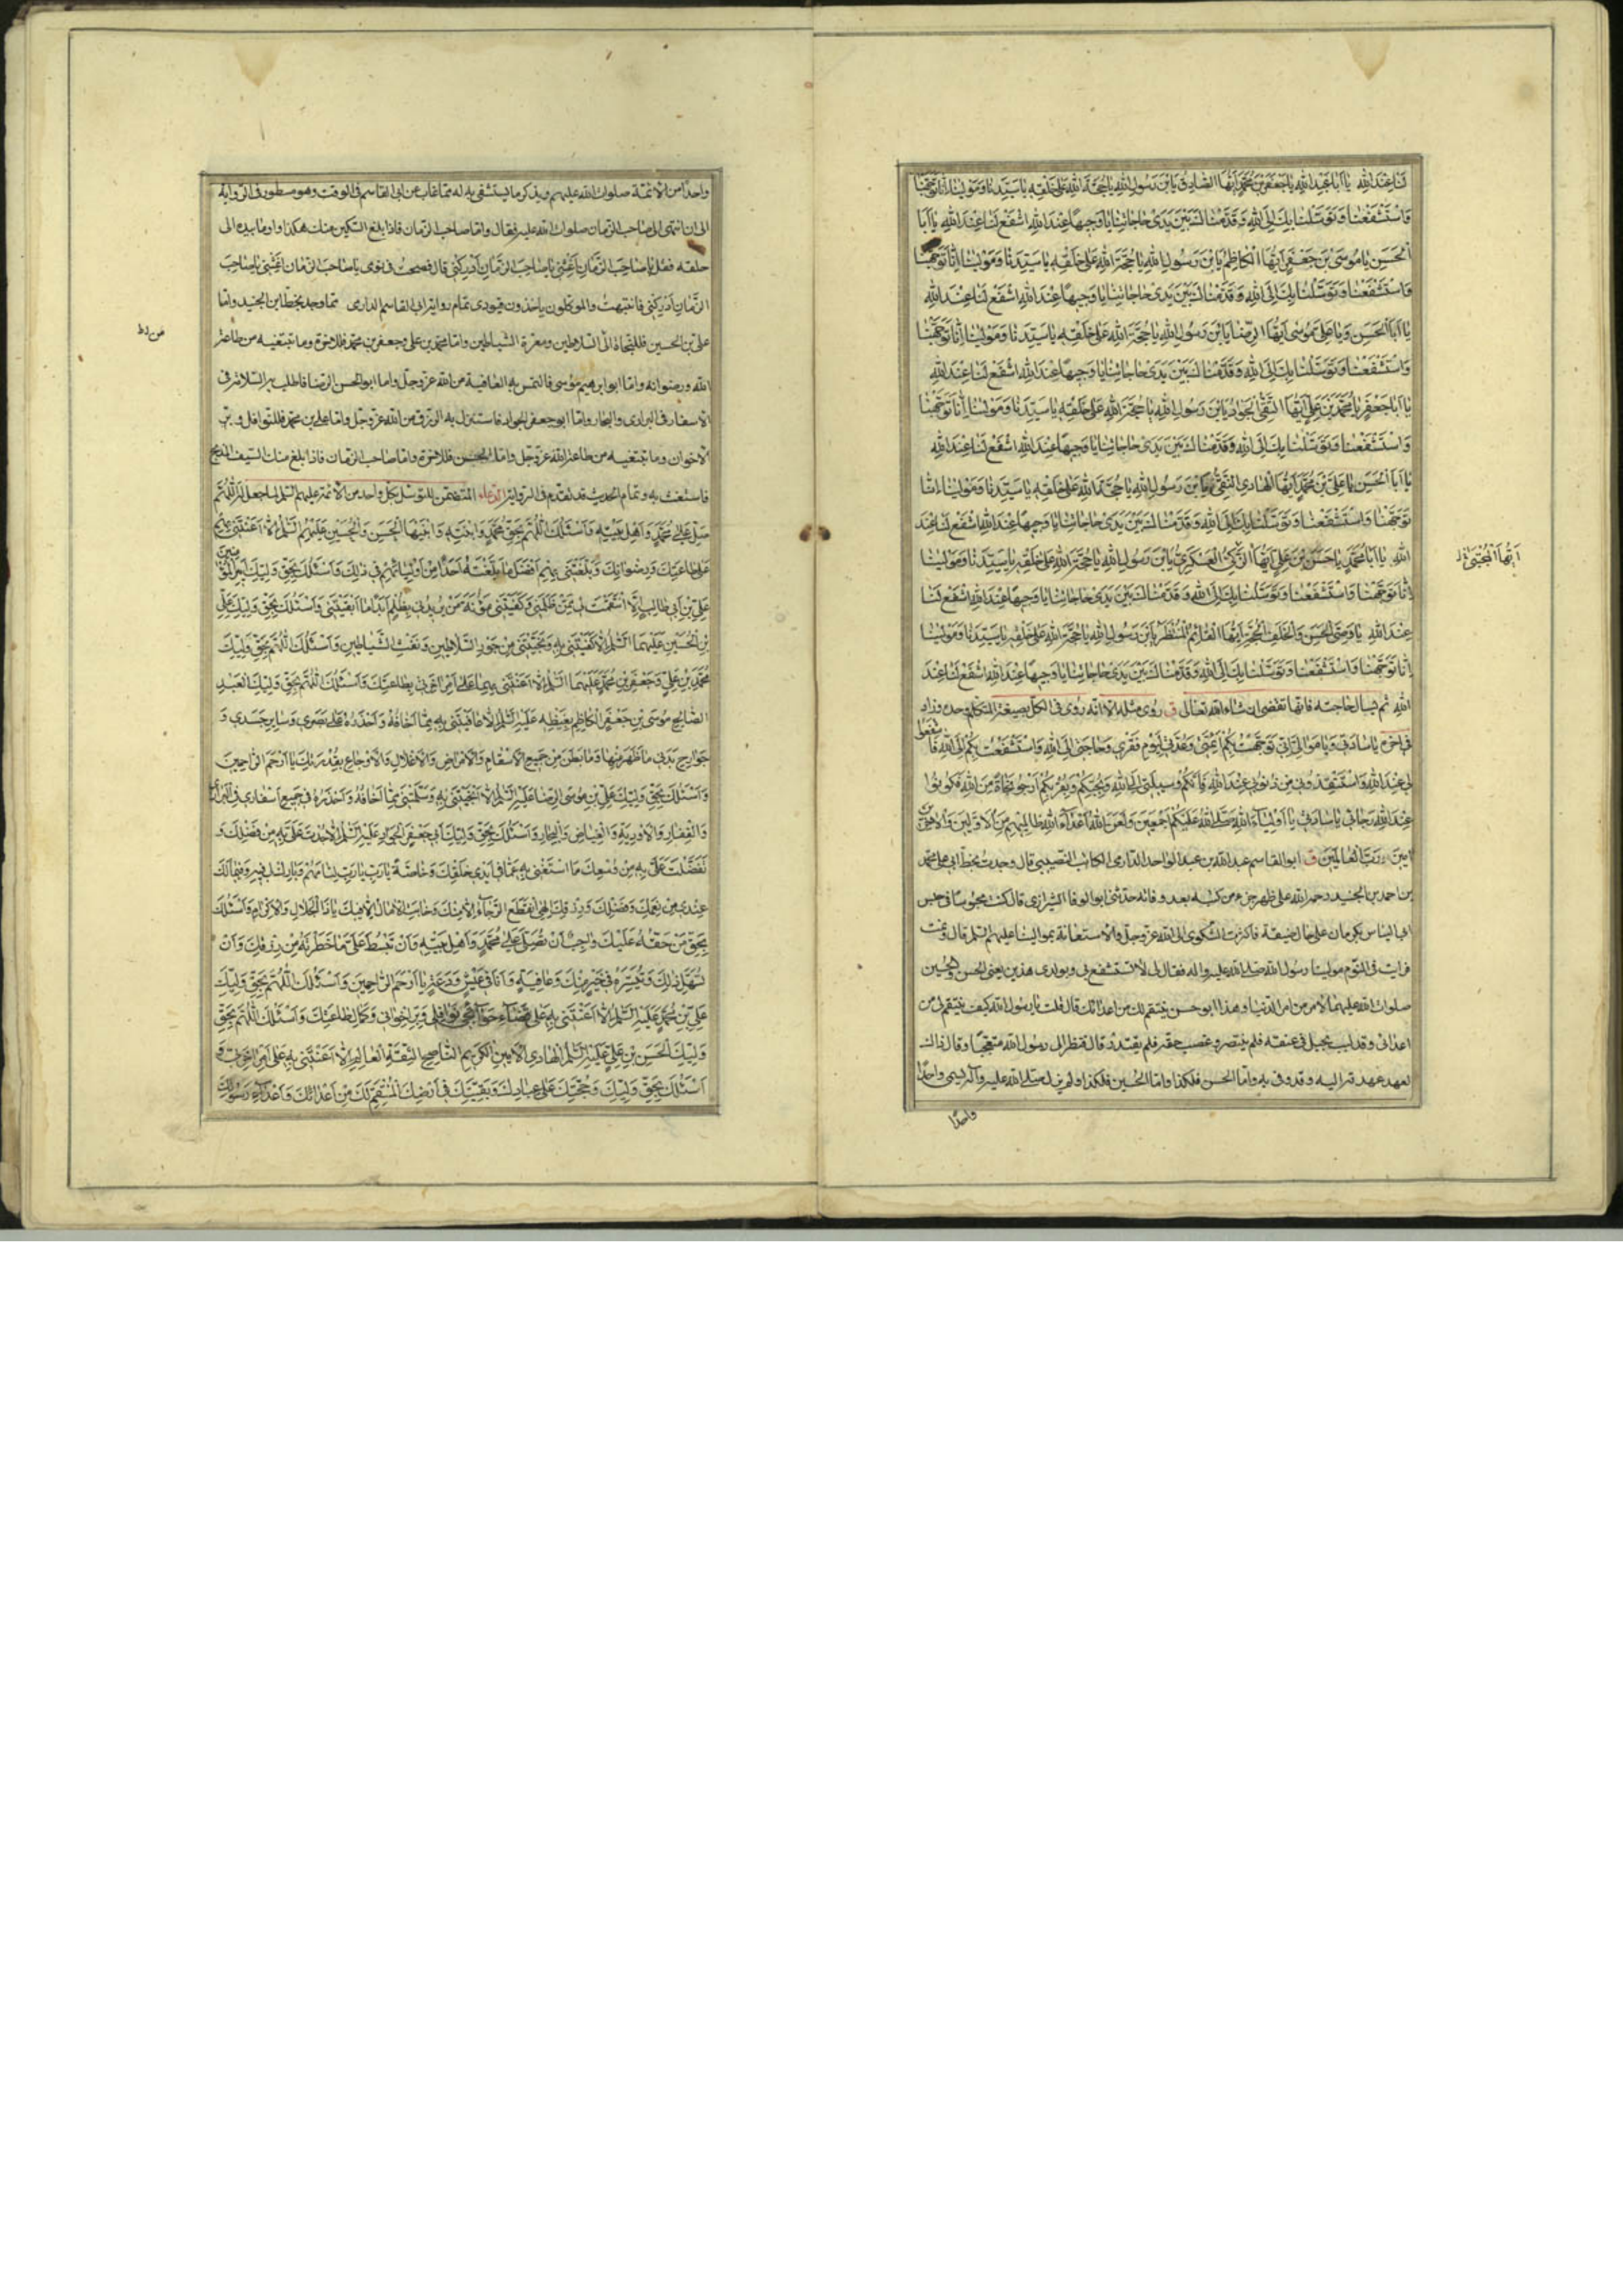 لَنَا عِنْدَ اللهِ يَا اَبَا عَبْدِ اللهِ يَا جَعْفَرَ بْنَ مُحَمَّدٍ اَيُّهَا الصَّادِقُ يَا بْنَ رَسُولِ اللهِ يَا حُجَّةَ اللهِ عَلَى خَلْقِهِ يَا سَيِّدَنَا وَمَوْلَيْنَا اِنَّا تَوَجَّهْنَا
وَاسْتَشْفَعْنَا وَتَوَسَّلْنَا بِكَ اِلَى اللهِ وَقَدَّمْنَاكَ بَيْنَ يَدَىْ حَاجَاتِنَا يَا وَجِيهًا عِنْدَ اللهِ اشْفَعْ لَنَا عِنْدَ اللهِ يَا اَبَا
الْحَسَنِ يَا مُوسَى بْنَ جَعْفَرٍ اَيُّهَا الْكَاظِمُ يَا بْنَ رَسُولِ اللهِ يَا حُجَّةَ اللهِ عَلَى خَلْقِهِ يَا سَيِّدَنَا وَمَوْلَيْنَا اِنَّا تَوَجَّهْنَا
وَاسْتَشْفَعْنَا وَتَوَسَّلْنَا بِكَ اِلَى اللهِ وَقَدَّمْنَاكَ بَيْنَ يَدَىْ حَاجَاتِنَا يَا وَجِيهًا عِنْدَ اللهِ اشْفَعْ لَنَا عِنْدَ اللهِ
يَا اَبَا الْحَسَنِ وَيَا عَلِىَّ بْنَ مُوسَى اَيُّهَا الرِّضَا يَا بْنَ رَسُولِ اللهِ يَا حُجَّةَ اللهِ عَلَى خَلْقِهِ يَا سَيِّدَنَا وَمَوْلَيْنَا اِنَّا تَوَجَّهْنَا
وَاسْتَشْفَعْنَا وَتَوَسَّلْنَا بِكَ اِلَى اللهِ وَقَدَّمْنَاكَ بَيْنَ يَدَىْ حَاجَاتِنَا يَا وَجِيهًا عِنْدَ اللهِ اشْفَعْ لَنَا عِنْدَ اللهِ
يَا اَبَا جَعْفَرٍ يَا مُحَمَّدَ بْنَ عَلِىٍّ اَيُّهَا التَّقِىُّ الْجَوَادُ يَا بْنَ رَسُولِ اللهِ يَا حُجَّةَ اللهِ عَلَى خَلْقِهِ يَا سَيِّدَنَا وَمَوْلَيْنَا اِنَّا تَوَجَّهْنَا
وَاسْتَشْفَعْنَا وَتَوَسَّلْنَا بِكَ اِلَى اللهِ وَقَدَّمْنَاكَ بَيْنَ يَدَىْ حَاجَاتِنَا يَا وَجِيهًا عِنْدَ اللهِ اشْفَعْ لَنَا عِنْدَ اللهِ
يَا اَبَا الْحَسَنِ يَا عَلِىَّ بْنَ مُحَمَّدٍ اَيُّهَا الْهَادِى النَّقِىُّ يَا بْنَ رَسُولِ اللهِ يَا حُجَّةَ اللهِ عَلَى خَلْقِهِ يَا سَيِّدَنَا وَمَوْلَيْنَا اِنَّا
تَوَجَّهْنَا وَاسْتَشْفَعْنَا وَتَوَسَّلْنَا بِكَ اِلَى اللهِ وَقَدَّمْنَاكَ بَيْنَ يَدَىْ حَاجَاتِنَا يَا وَجِيهًا عِنْدَ اللهِ اشْفَعْ لَنَا عِنْدَ
اللهِ يَا اَبَا مُحَمَّدٍ يَا حَسَنَ بْنَ عَلِىٍّ اَيُّهَا الزَّكِىُّ الْعَسْكَرِىُّ يَا بْنَ رَسُولِ اللهِ يَا حُجَّةَ اللهِ عَلَى خَلْقِهِ يَا سَيِّدَنَا وَمَوْلَيْنَا
اِنَّا تَوَجَّهْنَا وَاسْتَشْفَعْنَا وَتَوَسَّلْنَا بِكَ اِلَى اللهِ وَقَدَّمْنَاكَ بَيْنَ يَدَىْ حَاجَاتِنَا يَا وَجِيهًا عِنْدَ اللهِ اشْفَعْ لَنَا
عِنْدَ اللهِ يَا وَصِىَّ الْحَسَنِ وَالْخَلَفَ الْحُجَّةَ اَيُّهَا الْقَائِمُ الْمُنْتَظَرُ يَا بْنَ رَسُولِ اللهِ يَا حُجَّةَ اللهِ عَلَى خَلْقِهِ يَا سَيِّدَنَا وَمَوْلَيْنَا
اِنَّا تَوَجَّهْنَا وَاسْتَشْفَعْنَا وَتَوَسَّلْنَا بِكَ اِلَى اللهِ وَقَدَّمْنَاكَ بَيْنَ يَدَىْ حَاجَاتِنَا يَا وَجِيهًا عِنْدَ اللهِ اشْفَعْ لَنَا عِنْدَ
اللهِ ثم يسال حاجته فانها تقضى ان شاء الله تعالى ق روى مثله الا انه روى فى الكل بصيغة المتكلم وحده وزاد
فى اخره يَا سَادَتِى وَيَا مَوَالِىَّ اِنِّى تَوَجَّهْتُ بِكُمْ اَئِمَّتِى وَعُدَّتِى لِيَوْمِ فَقْرِى وَحَاجَتِى اِلَى اللهِ وَاسْتَشْفَعْتُ بِكُمْ اِلَى اللهِ فَاشْفَعُوا
لِى عِنْدَ اللهِ وَاسْتَنْقِذُونِى مِنْ ذُنُوبِى عِنْدَ اللهِ فَاِنَّكُمْ وَسِيلَتِى اِلَى اللهِ وَبِحُبِّكُمْ وَبِقُرْبِكُمْ اَرْجُو نَجَاةً مِنَ اللهِ فَكُونُوا
عِنْدَ اللهِ رَجَائِى يَا سَادَتِى يَا اَوْلِيَاءَ اللهِ صَلَّى اللهُ عَلَيْكُمْ اَجْمَعِينَ وَلَعَنَ اللهُ اَعْدَاءَ اللهِ ظَالِمِيهِمْ مِنَ الْاَوَّلِينَ وَالْاخِرِينَ
امِينَ رَبَّ الْعَالَمِينَ ق ابو القاسم عبد الله بن عبد الواحد الدارمى الكاتب النصيبى قال وجدت بخط ابى على محمد
بن احمد بن الجنيد رحمه الله على ظهر جزء من كتبه بعد وفاته حدثنى ابو الوفا الشيرازى قال كنت محبوسا فى حبس
ابى الياس بكرمان على حال ضيقة فاكثرت الشكوى الى الله عز وجل والاستغاثة بموالينا عليهم السلم قال ونمت
فرايت فى النوم مولينا رسول الله صلى الله عليه واله فقال لى لا تستشفع بى وبولدى هذين يعنى الحسن والحسين
صلوات الله عليهما لامر من امر الدنيا وهذا ابو حسن ينتقم لك من اعدائك قال قلت يا رسول الله كيف ينتقم لى من
اعدائى وقد لبب بحبل فى عنقه فلم ينتصر وغصب حقه فلم يقتدر قال فنظر الى رسول الله متعجبا وقال ذاك
لعهد عهدته اليه وقد وفى به واما الحسن فلكذا واما الحسين فلكذا ولم يزل صلى الله عليه وآله يسمى واحدا
واحدا
اَيُّهَا الْمُجْتَبَى
واحدا من الائمة صلوات الله عليهم ويذكر ما يستشفى به له مما غاب عن ابى القاسم فى الوقت وهو مسطور فى الرواية
الى ان انتهى الى صاحب الزمان صلوات الله عليه فقال واما صاحب الزمان فاذا بلغ السكين منك هكذا واومأ بيده الى
حلقه فقل يَا صَاحِبَ الزَّمَانِ اَغِثْنِى يَا صَاحِبَ الزَّمَانِ اَدْرِكْنِى قال فصحت فى نومى يا صاحب الزمان اغثنى يا صاحب
الزمان ادركنى فانتبهت والموكلون ياخذون قيودى تمام رواية ابى القاسم الدارمى مما وجد بخط ابن الجنيد واما
على بن الحسين فللنجاة الى السلاطين ومعرة الشياطين واما محمد بن على وجعفر بن محمد فللاخرة وما تبتغيه من طاعة
الله ورضوانه واما ابو ابرهيم موسى فالتمس به العافية من الله عز وجل واما ابو الحسن الرضا فاطلب به السلامة فى
الاسفار فى البرارى والبحار واما ابو جعفر الجواد فاستنزل به الرزق من الله عز وجل واما على بن محمد فللنوافل وبر
الاخوان وما تبتغيه من طاعة الله عز وجل واما الحسن فللاخرة واما صاحب الزمان فاذا بلغ منك السيف الذبح
فاستغث به وتمام الحديث قد تقدم فى الرواية الدعاء المتضمن للتوسل بكل واحد من الائمة عليهم السلم لما جعل له اَللَّهُمَّ
صَلِّ عَلَى مُحَمَّدٍ وَاَهْلِ بَيْتِهِ وَاَسْئَلُكَ اللَّهُمَّ بِحَقِّ مُحَمَّدٍ وَابْنَتِهِ وَابْنَيْهَا الْحَسَنِ وَالْحُسَيْنِ عَلَيْهِمُ السَّلَمُ اِلَّا اَعَنْتَنِى بِهِمْ
عَلَى طَاعَتِكَ وَرِضْوَانِكَ وَبَلَّغْتَنِى بِهِمْ اَفْضَلَ مَا بَلَّغْتَهُ اَحَدًا مِنْ اَوْلِيَائِهِمْ فِى ذَلِكَ وَاَسْئَلُكَ بِحَقِّ وَلِيِّكَ اَمِيرِ الْمُؤْمِنِينَ
عَلِىِّ بْنِ اَبِى طَالِبٍ اِلَّا انْتَقَمْتَ بِهِ مِمَّنْ ظَلَمَنِى وَكَفَيْتَنِى مَؤُنَةَ مَنْ يُرِيدُنِى بِظُلْمٍ اَبَدًا مَا اَبْقَيْتَنِى وَاَسْئَلُكَ بِحَقِّ وَلِيِّكَ عَلِىِّ
بْنِ الْحُسَيْنِ عَلَيْهِمَا السَّلَمُ اِلَّا كَفَيْتَنِى بِهِ وَنَجَّيْتَنِى مِنْ جَوْرِ السَّلَاطِينِ وَنَفْثِ الشَّيَاطِينِ وَاَسْئَلُكَ اللَّهُمَّ بِحَقِّ وَلِيَّيْكَ
مُحَمَّدِ بْنِ عَلِىٍّ وَجَعْفَرِ بْنِ مُحَمَّدٍ عَلَيْهِمَا السَّلَمُ اِلَّا اَعَنْتَنِى بِهِمَا عَلَى اَمْرِ اخِرَتِى بِطَاعَتِكَ وَاَسْئَلُكَ اللَّهُمَّ بِحَقِّ وَلِيِّكَ الْعَبْدِ
الصَّالِحِ مُوسَى بْنِ جَعْفَرٍ الْكَاظِمِ بِغَيْظِهِ عَلَيْهِ السَّلَمُ اِلَّا عَافَيْتَنِى بِهِ مِمَّا اَخَافُهُ وَاَحْذَرُهُ عَلَى بَصَرِى وَسَايِرِ جَسَدِى وَ
جَوَارِحِ بَدَنِى مَا ظَهَرَ مِنْهَا وَمَا بَطَنَ مِنْ جَمِيعِ الْاَسْقَامِ وَالْاَمْرَاضِ وَالْاَعْلَالِ وَالْاَوْجَاعِ بِقُدْرَتِكَ يَا اَرْحَمَ الرَّاحِمِينَ
وَاَسْئَلُكَ بِحَقِّ وَلِيِّكَ عَلِىِّ بْنِ مُوسَى الرِّضَا عَلَيْهِ السَّلَمُ اِلَّا اَنْجَيْتَنِى بِهِ وَسَلَّمْتَنِى مِمَّا اَخَافُهُ وَاَحْذَرُهُ فِى جَمِيعِ اَسْفَارِى فِى الْبَرَارِى
وَالْقِفَارِ وَالْاَوْدِيَةِ وَالْغِيَاضِ وَالْبِحَارِ وَاَسْئَلُكَ بِحَقِّ وَلِيِّكَ اَبِى جَعْفَرٍ الْجَوَادِ عَلَيْهِ السَّلَمُ اِلَّا جُدْتَ عَلَىَّ بِهِ مِنْ فَضْلِكَ وَ
تَفَضَّلْتَ عَلَىَّ بِهِ مِنْ وُسْعِكَ مَا اسْتَغْنِى بِهِ عَمَّا فِى اَيْدِى خَلْقِكَ وَخَاصَّةً يَا رَبِّ لِئَامَهُمْ وَبَارِكْ لِى فِيهِ وَفِيمَا لَكَ
عِنْدِى مِنْ نِعَمِكَ وَفَضْلِكَ وَرِزْقِكَ اِلَهِى انْقَطَعَ الرَّجَاءُ اِلَّا مِنْكَ وَخَابَتِ الْامَالُ اِلَّا فِيكَ يَا ذَا الْجَلَالِ وَالْاِكْرَامِ وَاَسْئَلُكَ
بِحَقِّ مَنْ حَقُّهُ عَلَيْكَ وَاجِبٌ اَنْ تُصَلِّىَ عَلَى مُحَمَّدٍ وَاَهْلِ بَيْتِهِ وَاَنْ تَبْسُطَ عَلَىَّ مَا حَظَرْتَهُ مِنْ رِزْقِكَ وَاَنْ
تُسَهِّلَ ذَلِكَ وَتُيَسِّرَهُ فِى خَيْرٍ مِنْكَ وَعَافِيَةٍ وَاَنَا فِى خَفْضِ عَيْشٍ وَدَعَةٍ يَا اَرْحَمَ الرَّاحِمِينَ وَاَسْئَلُكَ اللَّهُمَّ بِحَقِّ وَلِيِّكَ
عَلِىِّ بْنِ مُحَمَّدٍ عَلَيْهِ السَّلَمُ اِلَّا اَعَنْتَنِى بِهِ عَلَى قَضَاءِ حَوَائِجِى نَوَافِلِى وَبِرِّ اِخْوَانِى وَكَمَالِ طَاعَتِكَ وَاَسْئَلُكَ اللَّهُمَّ بِحَقِّ
وَلِيِّكَ الْحَسَنِ بْنِ عَلِىٍّ عَلَيْهِ السَّلَمُ الْهَادِى الْاَمِينِ الْكَرِيمِ النَّاصِحِ الثِّقَةِ الْعَالِمِ اِلَّا اَعَنْتَنِى بِهِ عَلَى اَمْرِ اخِرَتِى وَ
اَسْئَلُكَ بِحَقِّ وَلِيِّكَ وَحُجَّتِكَ عَلَى عِبَادِكَ وَبَقِيَّتِكَ فِى اَرْضِكَ الْمُنْتَقِمِ لَكَ مِنْ اَعْدَائِكَ وَاَعْدَاءِ رَسُولِكَ